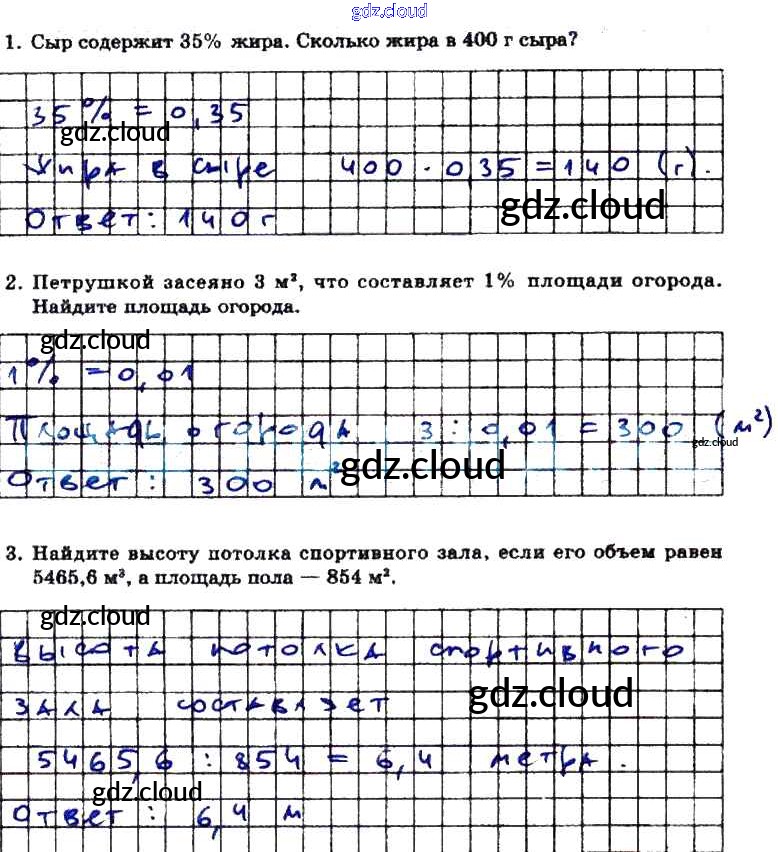 gdz.cloud
1. Сыр содержит 35% жира. Сколько жира в 400 г сыра?
35% = 0,35
gdz.cloud
Жира в сыре 400 · 0,35 = 140 (г).
Ответ: 140 г
gdz.cloud
2. Петрушкой засеяно 3 м², что составляет 1% площади огорода.
Найдите площадь огорода.
gdz.cloud
1% = 0,01
Площадь огорода 3 : 0,01 = 300 (м²)
gdz.cloud
Ответ: 300 м²
gdz.cloud
3. Найдите высоту потолка спортивного зала, если его объем равен
5465,6 м³, а площадь пола — 854 м².
gdz.cloud
Высота потолка спортивного
зала составляет
gdz.cloud
5465,6 : 854 = 6,4 метра.
gdz.cloud
Ответ: 6,4 м